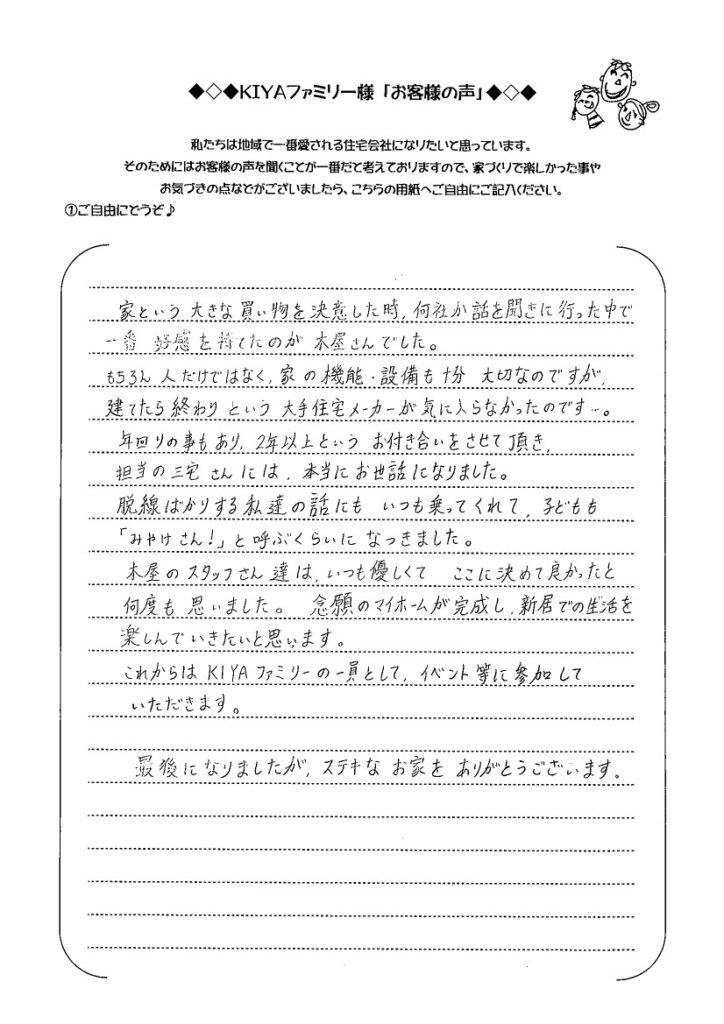 ◆◇◆KIYAファミリー様「お客様の声」◆◇◆
私たちは地域で一番愛される住宅会社になりたいと思っています。
そのためにはお客様の声を聞くことが一番だと考えておりますので、家づくりで楽しかった事や
お気づきの点などがございましたら、こちらの用紙へご自由にご記入ください。
①ご自由にどうぞ♪
家という大きな買い物を決意した時,何社か話を聞きに行った中で
一番 好感を持てたのが 木屋さんでした。
もちろん 人だけではなく,家の機能・設備も十分 大切なのですが,
建てたら終わりという 大手住宅メーカーが気に入らなかったのです…。
年回りの事もあり,2年以上という お付き合いをさせて頂き,
担当の三宅さんには,本当にお世話になりました。
脱線ばかりする私達の話にも いつも乗ってくれて,子どもも
「みやけさん!」と呼ぶくらいに なつきました。
木屋のスタッフさん達は,いつも優しくて ここに決めて良かったと
何度も思いました。 念願のマイホームが完成し,新居での生活を
楽しんでいきたいと思います。
これからは KIYAファミリーの一員として,イベント等に参加して
いただきます。
最後になりましたが,ステキな お家を ありがとうございます。